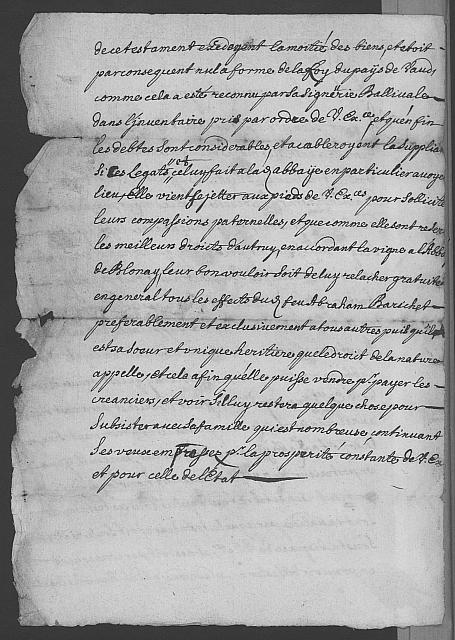 de ce testament excedoyent la moitié des biens, et etoit
par consequent nul a la forme de la Loy du païs de Vaud
comme cela a esté reconnu par sa Signérie Ballivale
dans l'Inventaire pris par ordre de V. Ex.ces et quén fin
les debtes sont considerables et acableroyent la Supplia
Si les legats et celuy fait a la d. abbaÿe en particulier avoyent
lieu, Elle vient se jetter aux pieds de V. Ex.ces pour Sollicit
leurs compassions paternelles, et que comme elle sont reser
les meilleurs droits d'autruy, en accordant la vigne a l'Abb
de Blonay, leur bon vouloir soit de luy relacher gratuite
en general tous les effects du d. feu Abraham Barichet
preferablement et exclusivement a tous autres puis qu'elle
est sa soeur et unique heritiére que le droit de la nature
appelle, et cela afin qu'elle puisse vendre p.r payer les
creanciers, et voir S'il luy restera quelque chose pour
Subsister avec sa famille qui est nombreuse, continuant
Ses voeux empressez p.r la prosperité constante de V. Ex
et pour celle de l'Etat